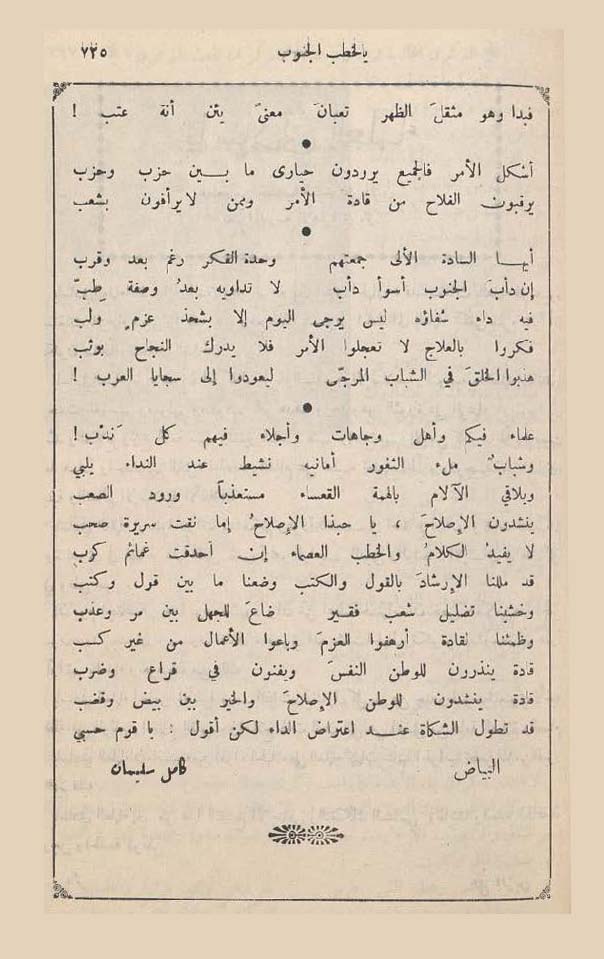 يا لخطب الجنوب ٧٢٥
فبدا وهو مثقلَ الظهر تعبانَ معنىً يئن أنة عتب !
أشكل الأمر فالجميع يرودون حيارى ما بـين حزب وحزب
يرقبون الفلاح من قادة الأمر وممن لا يرأفون بشعب
أيهـا السادة الألى جمعتهم وحدة الفكر رغم بعد وقرب
إن دأبَ الجنوب أسوأ دأب لا تداويه بعدُ وصفة طبّ
فيه داء شفاؤه ليس يرجى اليوم إلا بشحذ عزم ولب
فكروا بالعلاج لا تعجلوا الأمر فلا يدرك النجاح بوثب
هذبوا الخلقَ في الشباب المرجّى ليعودوا إلى سجايا العرب !
علماء فيكم وأهل وجاهات وأجلاء فيهم كل نَدْبِ !
وشبابٌ ملء الثغور أمانيه نشيط عند النداء يلبي
ويلاقي الآلام بالهمة القعساء مستعذباً ورود الصعب
ينشدون الإصلاحَ ، يا حبذا الإصلاحُ إما نقت سريرة صحب
لا يفيدُ الكلامُ والخطب العصماء إن أحدقت غمائم كرب
قد مللنا الإرشادَ بالقول والكتب وضعنا ما بين قول وكتب
وخشينا تضليل شعب فقير ضاعَ للجهل بين مر وعذب
وظمئنا لقادة أرهفوا العزمَ وباعوا الأعمال من غير كسب
قادة ينذرون للوطن النفسَ ويفنون في قراع وضرب
قادة ينشدون للوطن الإصلاحَ والخير بين بيض وقضب
قد تطول الشكاة عنـد اعتراض الداء لكن أقول : يا قوم حسبي
البياض كامل سليمان